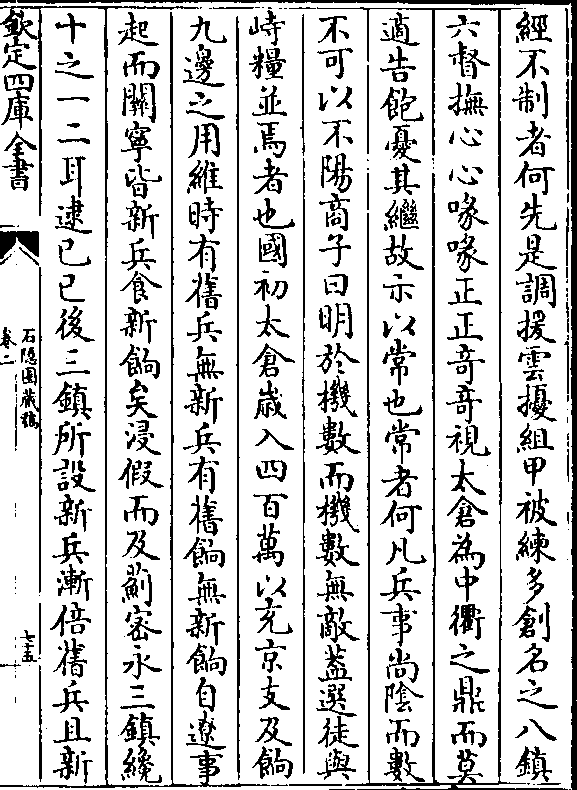 經不制者何先是調援雲擾組甲被練多創名之八鎮
六督撫心心喙喙正正竒竒視太倉為中衢之鼎而莫
適告飽憂其繼故示以常也常者何凡兵事尚陰而數
不可以不陽商子曰明於機數而機數無敵葢選徒與
峙糧並焉者也國初太倉歲入四百萬以充京支及餉
九邊之用維時有舊兵無新兵有舊餉無新餉自遼事
起而關寧皆新兵食新餉矣浸假而及薊密永三鎮纔
十之一二耳逮己巳後三鎮所設新兵漸倍舊兵且新
欽定四庫全書
石隱園藏稿
卷二
七十五